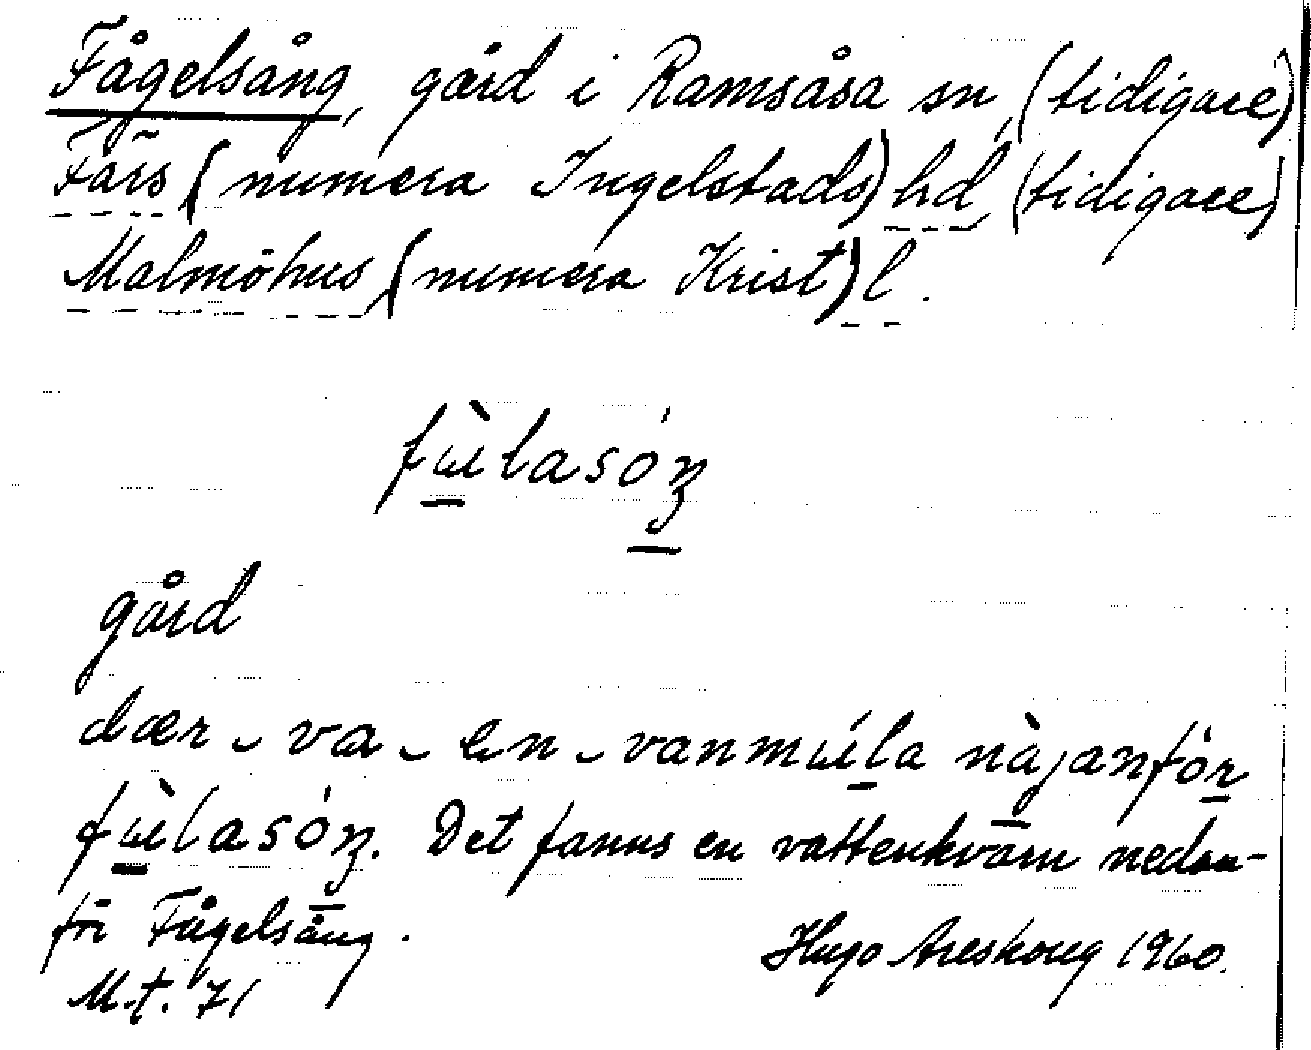 Fågelsång, gård i Ramsåsa sn, (tidigare)
Färs (numera Ingelstads) hd, (tidigare)
Malmöhus, (numera Krist) l.
fɯ̀lasóŋ
gård
dær ‿ va ‿ en ‿ vanmɯ́la nàjanfór
fɯ̀lasóŋ. Det fanns en vattenkvarn nedan-
för Fågelsång.
Hugo Areskoug 1960.
M.t. 71